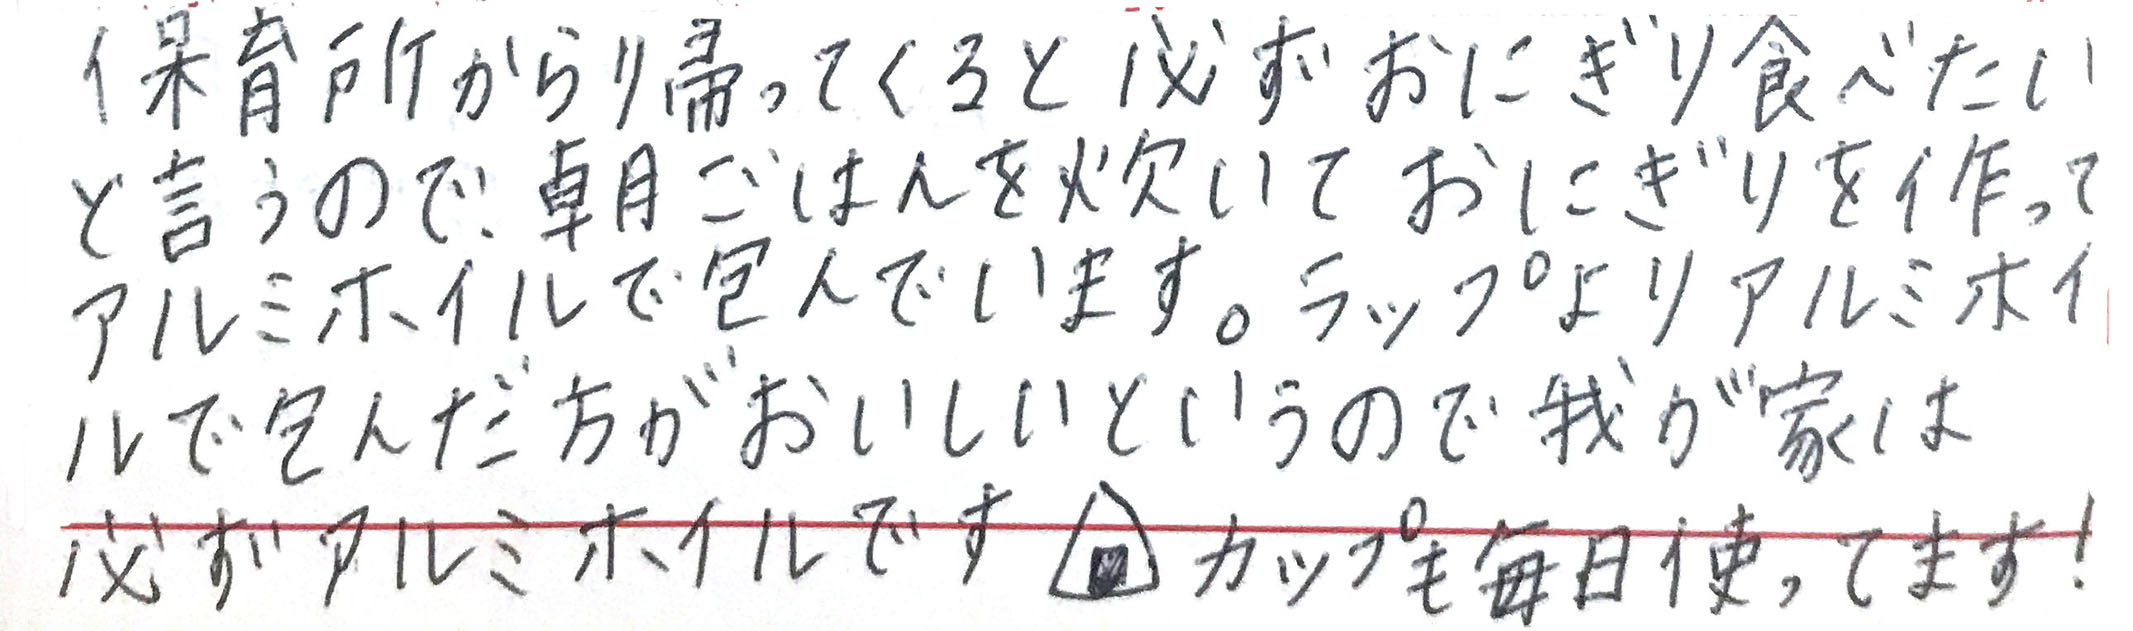 保育所から帰ってくると必ずおにぎり食べたい
と言うので、朝ごはんを炊いておにぎりを作って
アルミホイルで包んでいます。ラップよりアルミホイ
ルで包んだ方がおいしいというので我が家は
必ずアルミホイルです🍙カップも毎日使ってます!